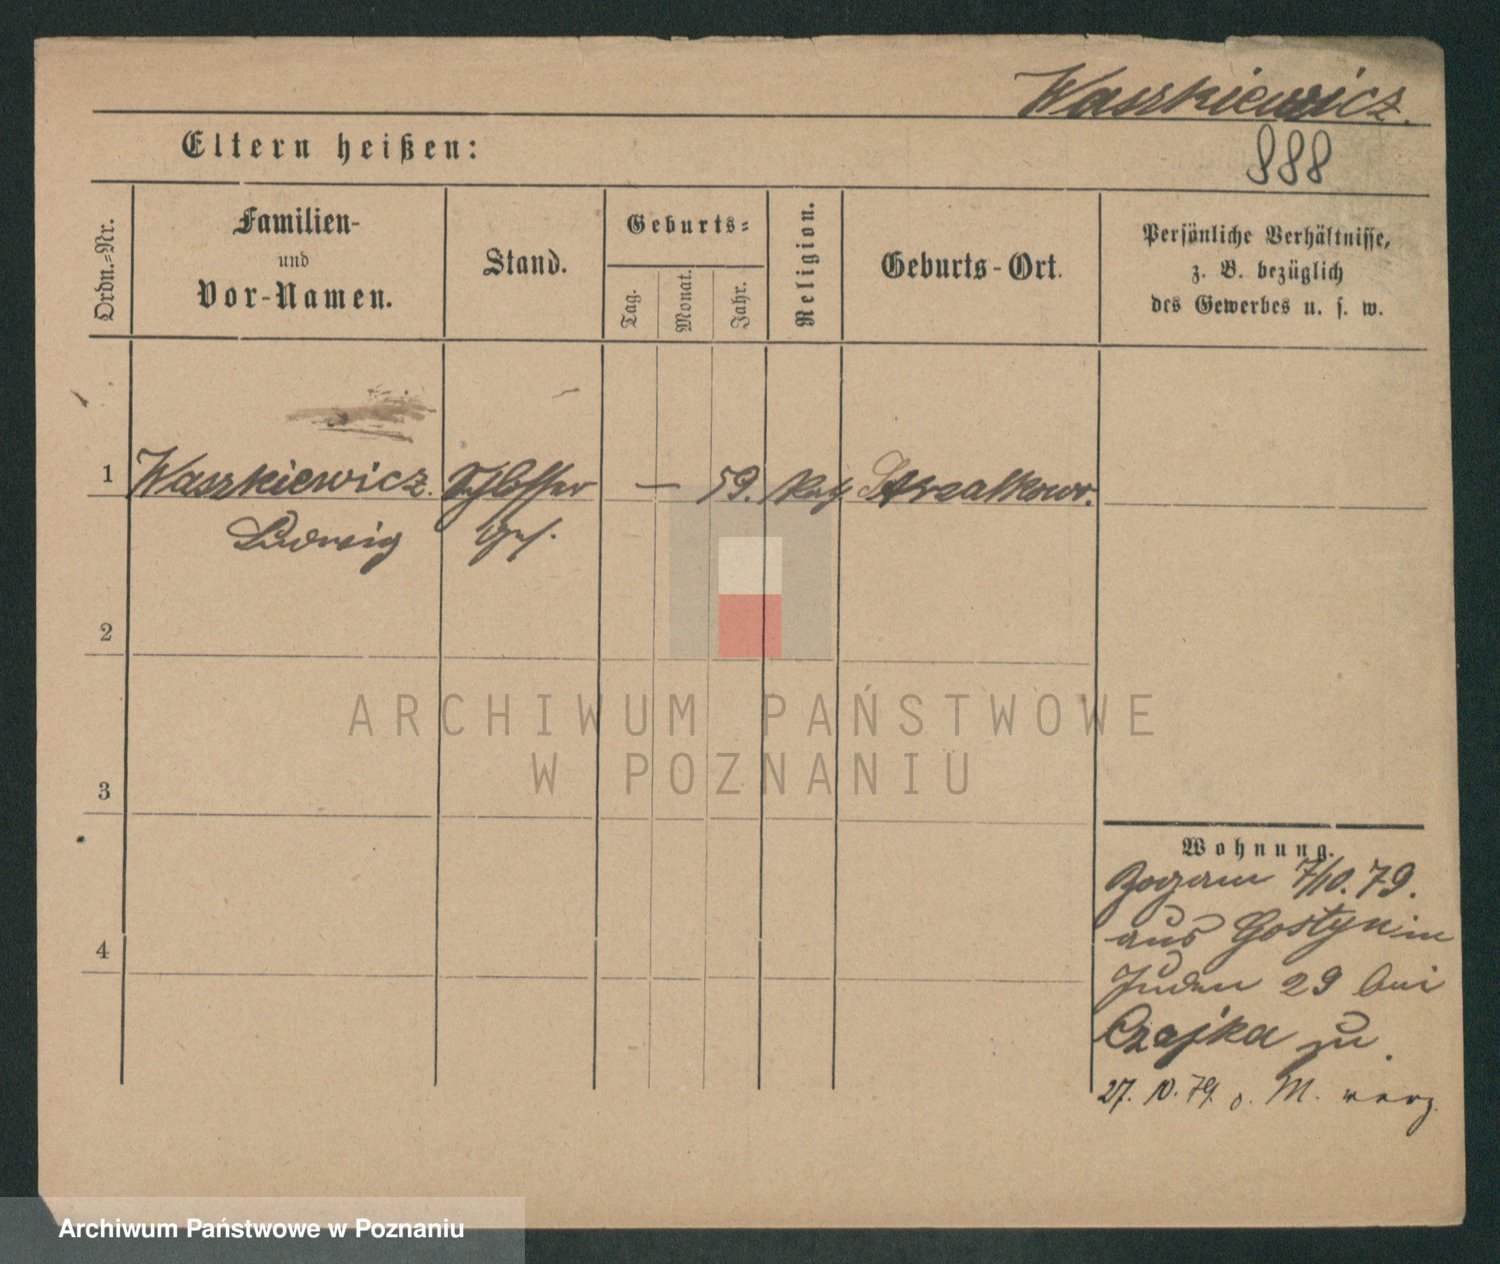 Waszkiewicz.
Eltern heißen:
888
Ordn.=Nr.
Familien-
und
Vor-Namen.
Stand.
Geburts=
Tag.
Monat.
Jahr.
Religion.
Geburts-Ort.
Persönliche Verhältnisse,
z. B. bezüglich
des Gewerbes u. s. w.
1 Waszkiewicz. Schlosser — 59. kath Strzalkowo.
Ludwig Ges.
2
ARCHIWUM PAŃSTWOWE
W POZNANIU
3
Wohnung.
Zogam 7/10. 79.
aus Gostyn in
4
Juden 29 bei
Czajka zu.
27. 10. 79. o. M. verz.
Archiwum Państwowe w Poznaniu